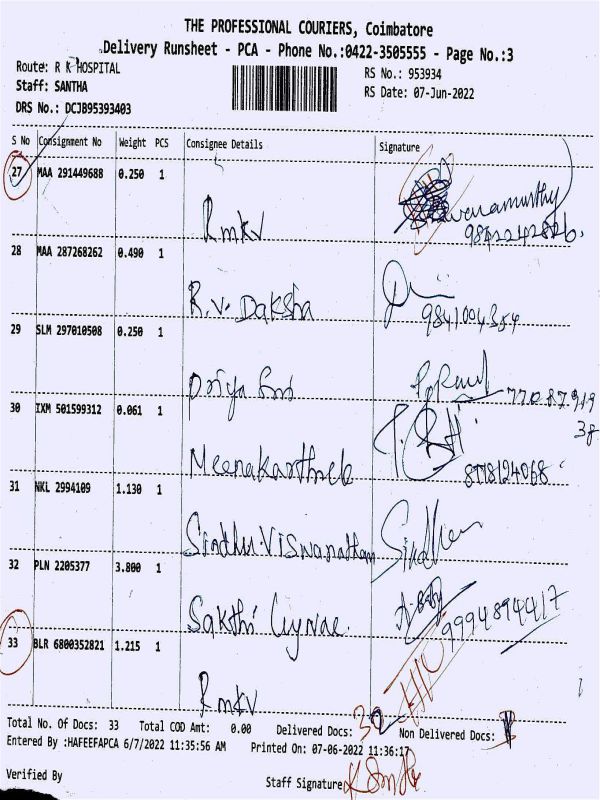 THE PROFESSIONAL COURIERS, Coimbatore
Delivery Runsheet - PCA - Phone No.:0422-3505555 - Page No.:3
Route: R K HOSPITAL
RS No.: 953934
Staff: SANTHA
RS Date: 07-Jun-2022
DRS No.: DCJB95393403
S No Consignment No Weight PCS Consignee Details Signature
27 MAA 291449688 0.250 1
Rmkv
28 MAA 287268262 0.490 1
R.V. Daksha
9841004354
29 SLM 297010508 0.250 1
Priya
7708791938
30 IXM 501599312 0.061 1
8778124068
31 NKL 2994109 1.130 1
Sindhu Viswanatham
32 PLN 2205377 3.800 1
Sakthi
9994894417
33 BLR 6800352821 1.215 1
Rmkv
Total No. Of Docs: 33 Total COD Amt: 0.00 Delivered Docs: 32 Non Delivered Docs:
Entered By :HAFEEFAPCA 6/7/2022 11:35:56 AM Printed On: 07-06-2022 11:36:17
Verified By Staff Signature